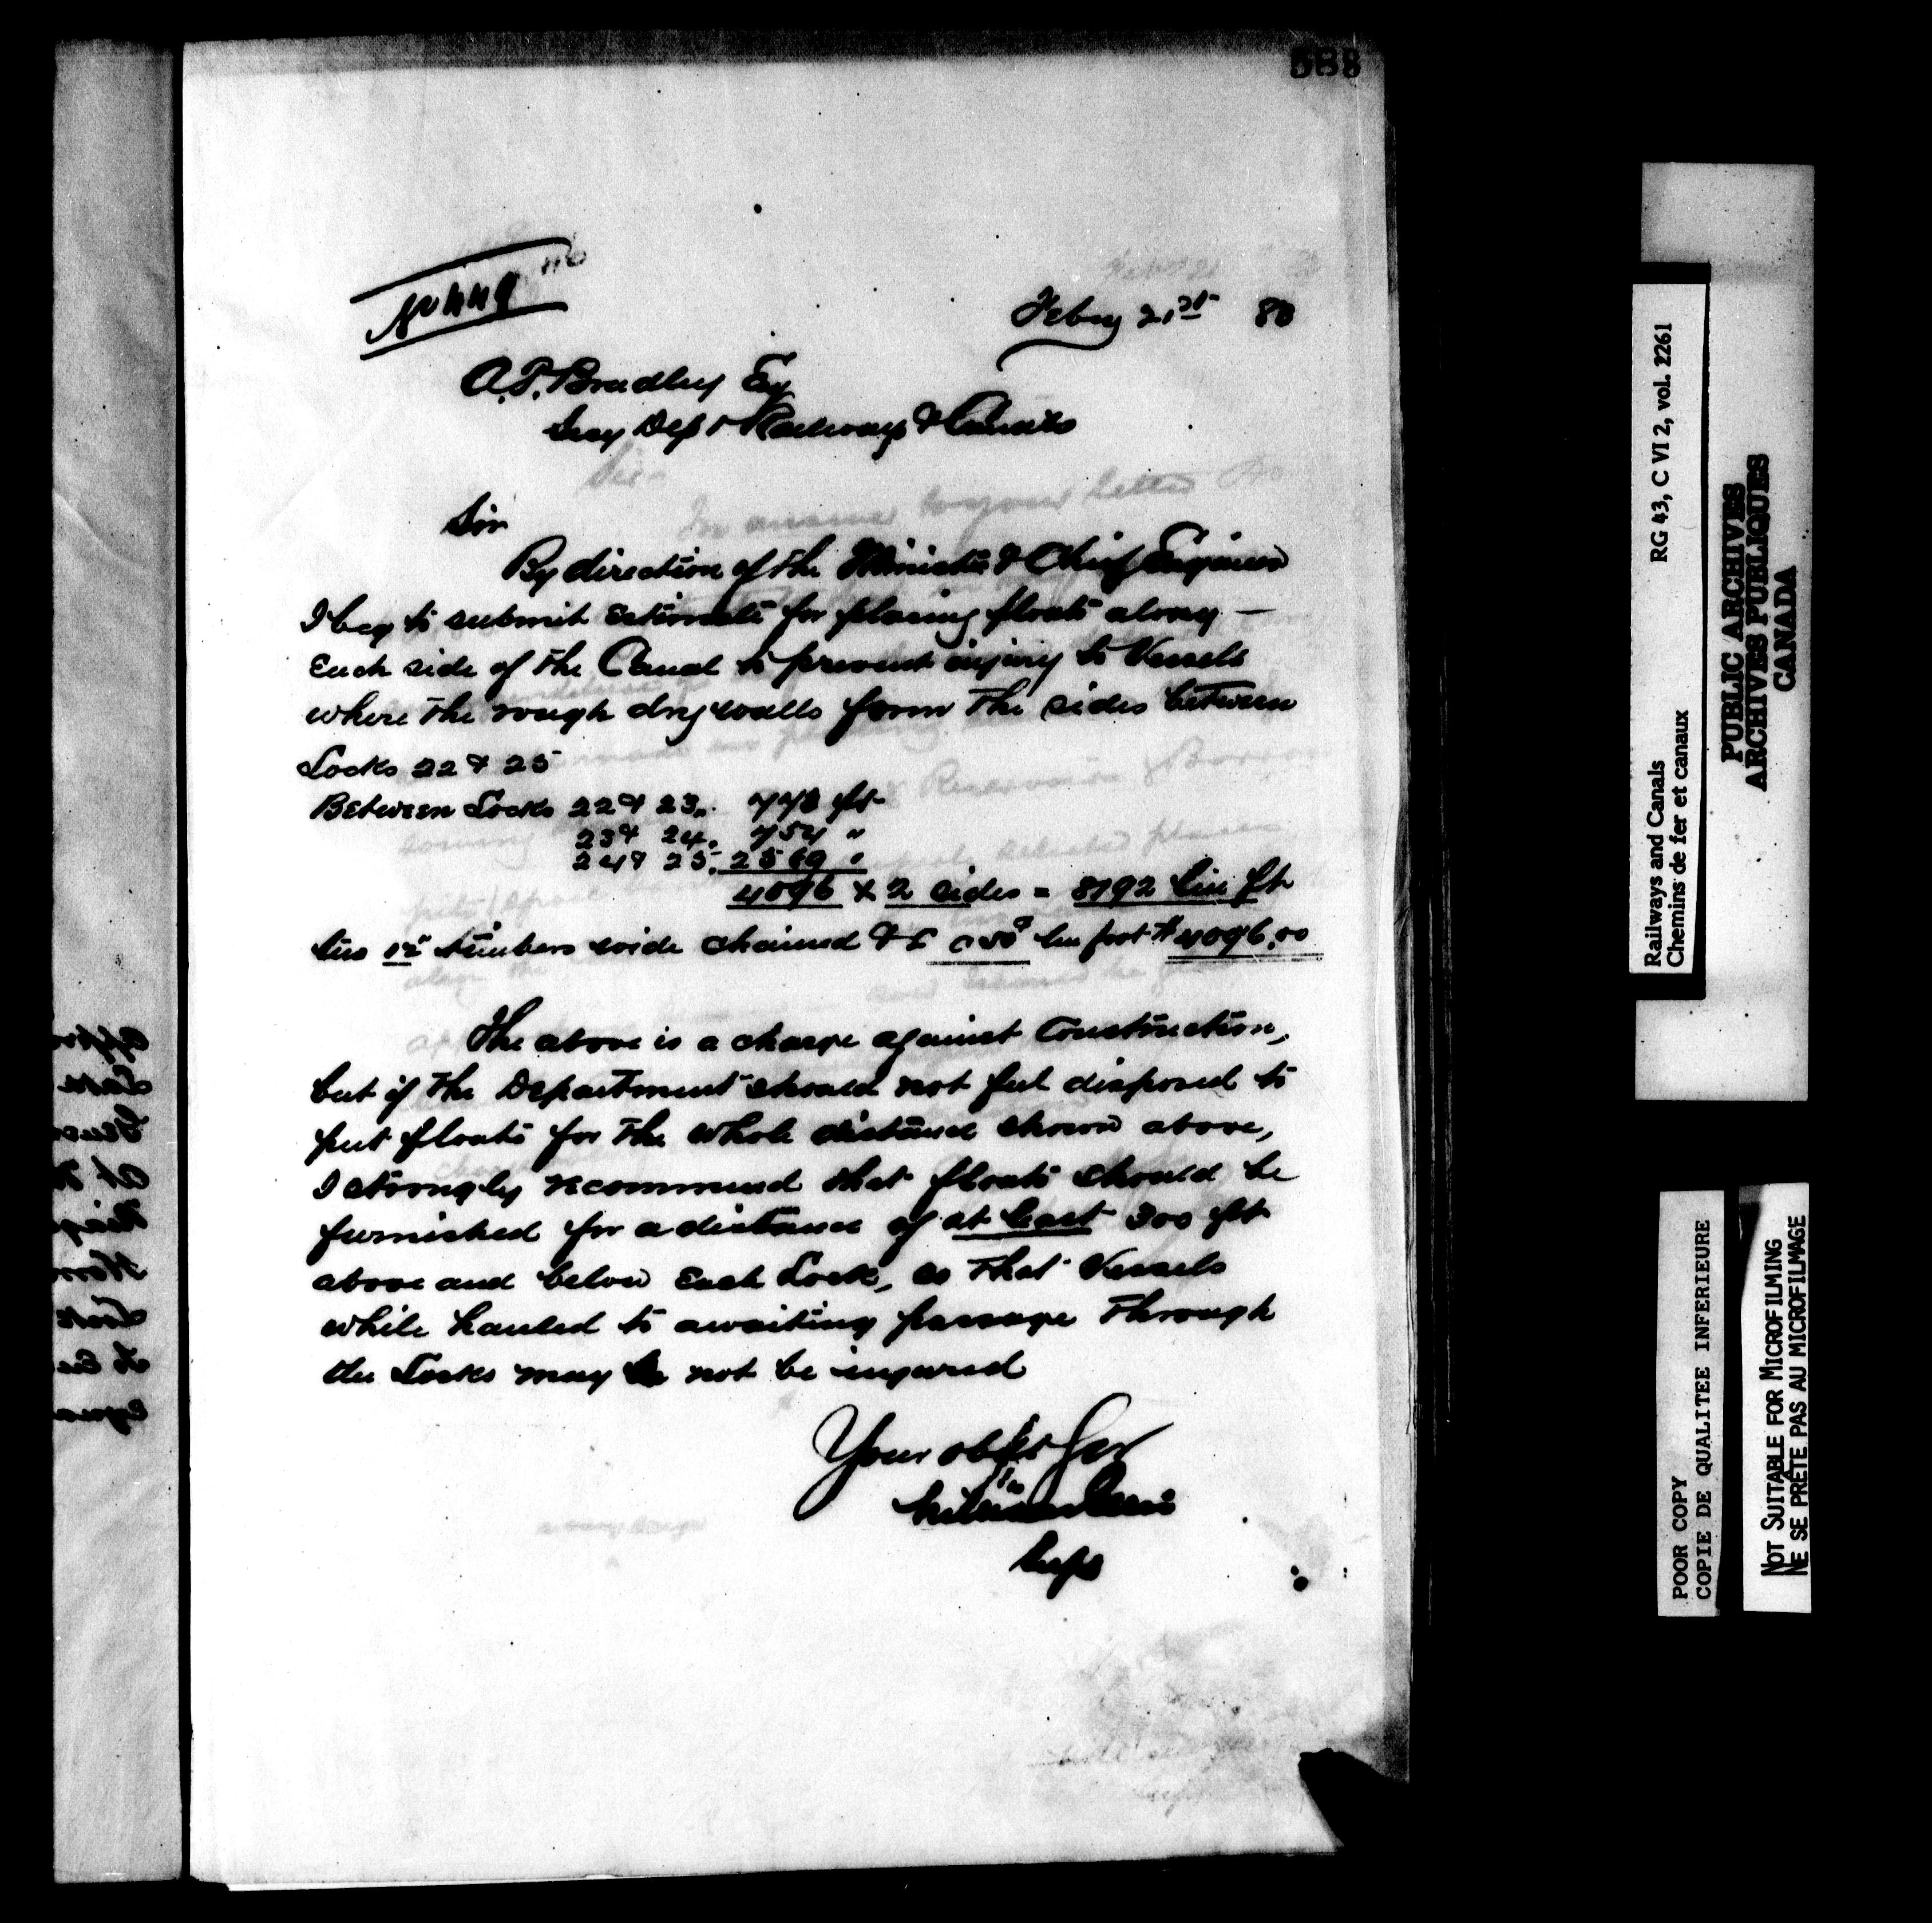 588
Febry 21st
A.P. Bradley Esq
Secy Dept Railways & Canals
Sir
By direction of the Minister & Chief Engineer
I beg to submit Estimate for placing floats along —
Each side of the Canal to prevent injury to Vessels
where the rough dry walls form the sides between
Locks 22 & 25
Between Locks 22 & 23. 773 ft
23 & 24. 754 "
24 & 25. 2569 "
4096 X 2 sides = 8192 lin ft
two 12" timbers wide chained &c 050 lin foot $4096.00
The above is a charge against Construction,
but if the Department should not feel disposed to
put floats for the whole distance shown above,
I strongly recommend that floats should be
furnished for a distance of at least 300 ft
above and below Each Lock, so that Vessels
while hauled to awaiting passage through
the Locks may not be injured
Your obdt Ser
William Ellis
Supt
Railways and Canals RG 43, C VI 2, vol. 2261
Chemins de fer et canaux
PUBLIC ARCHIVES
ARCHIVES PUBLIQUES
CANADA
POOR COPY
COPIE DE QUALITEE INFERIEURE
NOT SUITABLE FOR MICROFILMING
NE SE PRÊTE PAS AU MICROFILMAGE